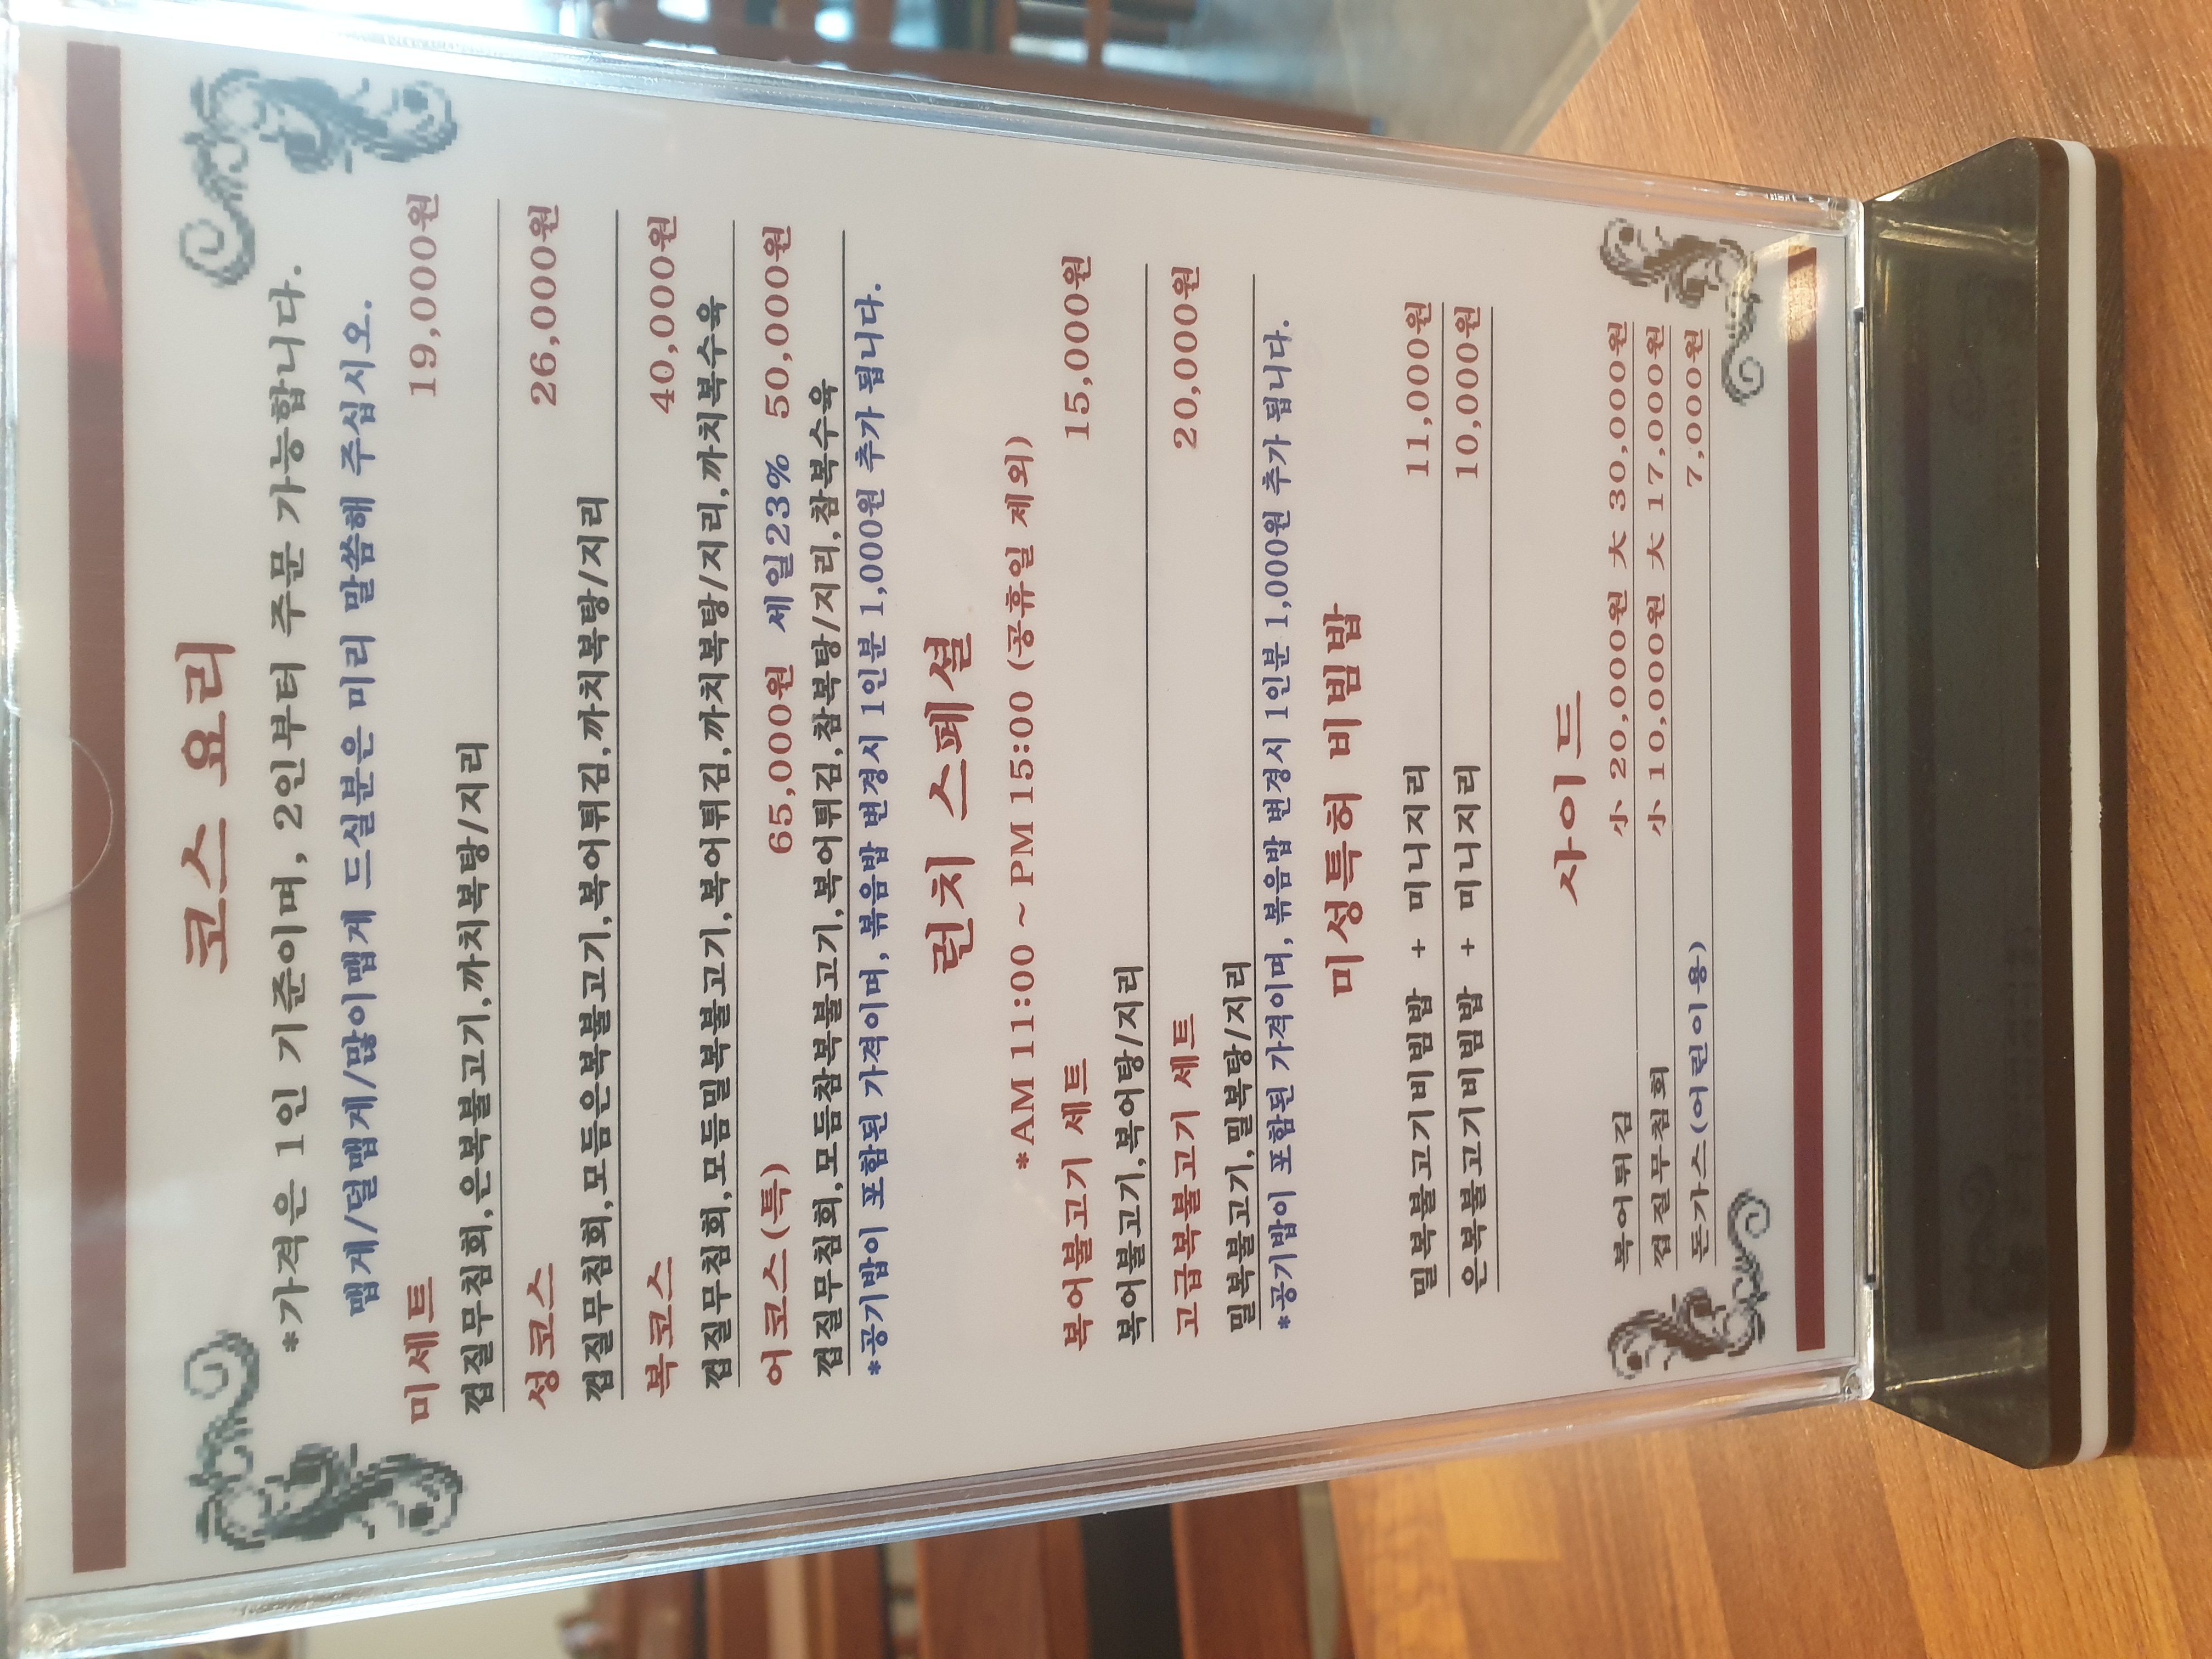 코스 요리
*가격은 1인 기준이며, 2인부터 주문 가능합니다.
맵게/덜맵게/많이맵게 드실분은 미리 말씀해 주십시오.
미세트 19,000원
껍질무침회,은복불고기,까치복탕/지리
성코스 26,000원
껍질무침회,모듬은복불고기,복어튀김,까치복탕/지리
복코스 40,000원
껍질무침회,모듬밀복불고기,복어튀김,까치복탕/지리,까치복수육
어코스(특) 65,000원 세일23% 50,000원
껍질무침회,모듬참복불고기,복어튀김,참복탕/지리,참복수육
*공기밥이 포함된 가격이며, 볶음밥 변경시 1인분 1,000원 추가 됩니다.
런치 스페셜
*AM 11:00 ~ PM 15:00 (공휴일 제외)
복어불고기 세트 15,000원
복어불고기,복어탕/지리
고급복불고기 세트 20,000원
밀복불고기,밀복탕/지리
*공기밥이 포함된 가격이며, 볶음밥 변경시 1인분 1,000원 추가 됩니다.
미성특허 비빔밥
밀복불고기비빔밥 + 미니지리 11,000원
은복불고기비빔밥 + 미니지리 10,000원
사이드
복어튀김 小 20,000원 大 30,000원
껍질무침회 小 10,000원 大 17,000원
돈가스(어린이용) 7,000원